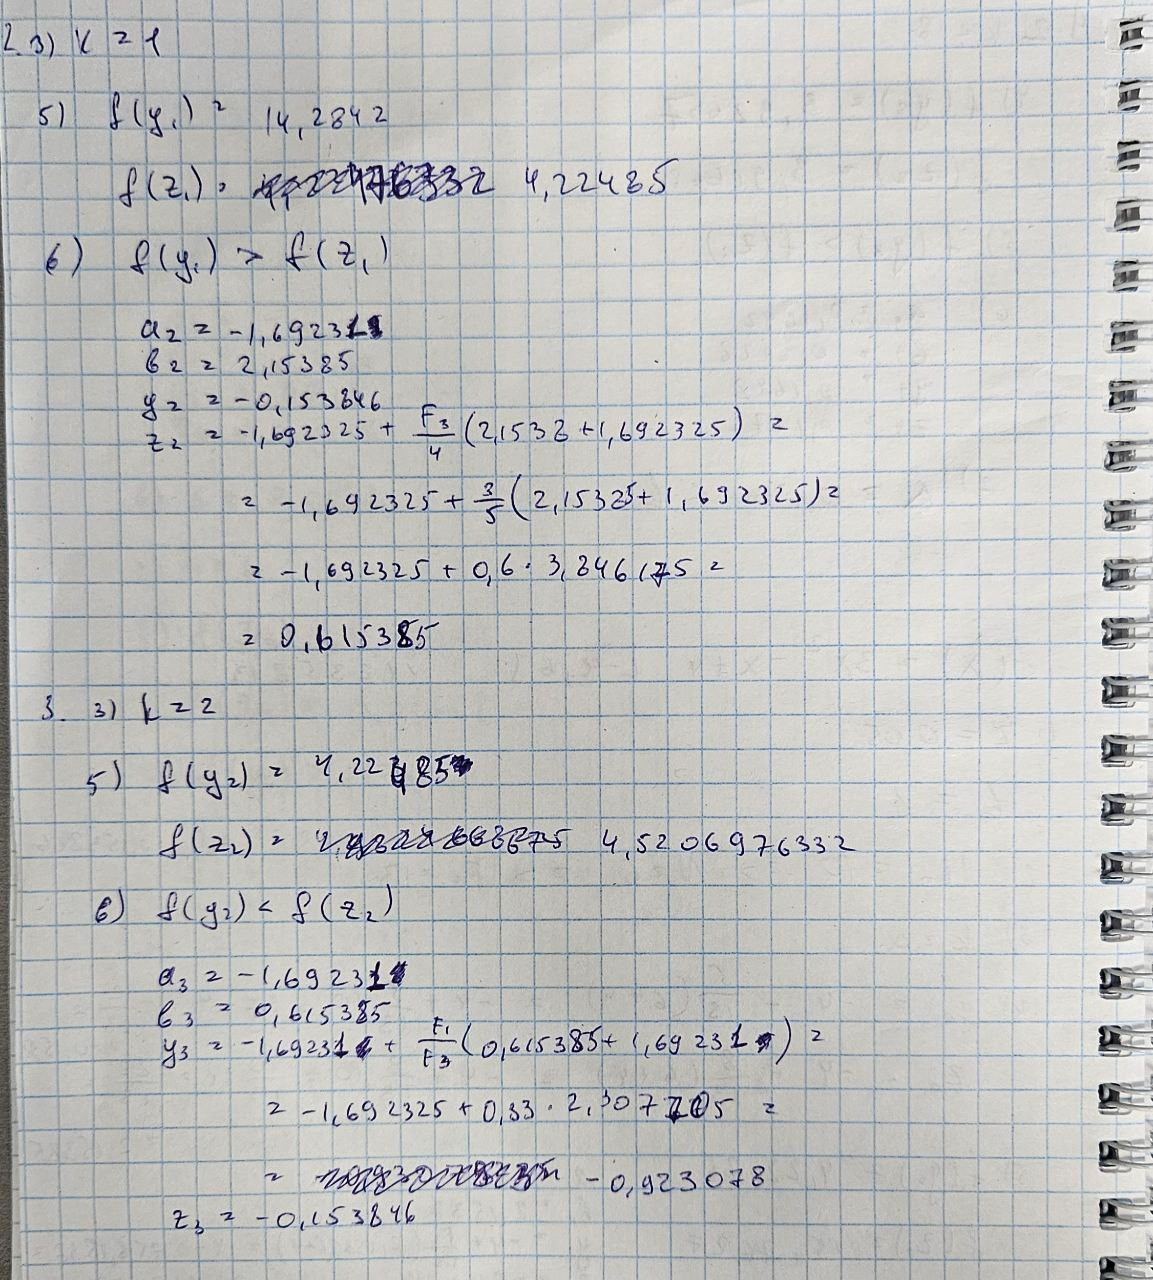 2. 3) k = 1
5) f(y₁) = 14,2842
f(z₁) = 4,22485
6) f(y₁) > f(z₁)
a₂ = -1,69231
b₂ = 2,15385
y₂ = -0,153846
z₂ = -1,692325 + F₃/4 (2,1538 + 1,692325) =
= -1,692325 + 3/5 (2,15385 + 1,692325) =
= -1,692325 + 0,6 · 3,846175 =
= 0,615385
3. 3) k = 2
5) f(y₂) = 4,22485
f(z₂) = 4,5206976332
6) f(y₂) < f(z₂)
a₃ = -1,69231
b₃ = 0,615385
y₃ = -1,69231 + F₁/F₃ (0,615385 + 1,69231) =
= -1,692325 + 0,33 ·
= -0,923078
z₃ = -0,153846